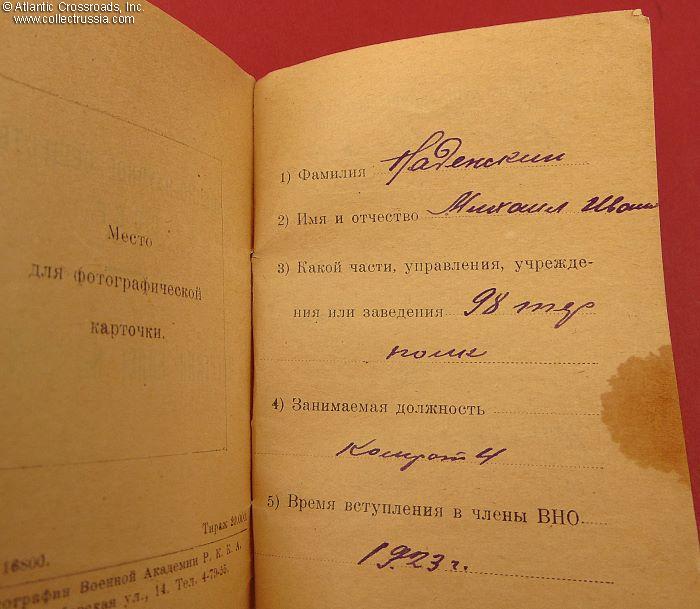 © Atlantic Crossroads, Inc.
www.collectrussia.com
Место
для фотографической
карточки.
Тираж 20.000.
16800.
ография Военной Академии Р. К. К. А.
ская ул., 14. Тел. 4-79-55.
1) Фамилия Наденский
2) Имя и отчество Михаил Иван
3) Какой части, управления, учрежде-
ния или заведения 98 тер
полк
4) Занимаемая должность
Комрот 4
5) Время вступления в члены ВНО
1923 г.